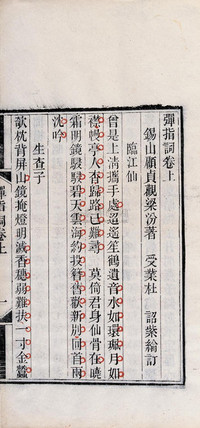 彈指詞卷上
錫山顧貞觀粱汾著 受業杜 詔紫綸訂
臨江仙
曾是上清攜手處迢迢笙鶴遺音水如環珮月如
襟帳亭人杳歸路已難尋 莫倚君身仙骨在曉
霜明鏡駸駸碧天雲海約投簪舊歡新別回首兩
沈吟
生查子
欹枕背屏山鏡掩燈明滅香穗弱難扶一寸金蠶
彈指詞卷上
一